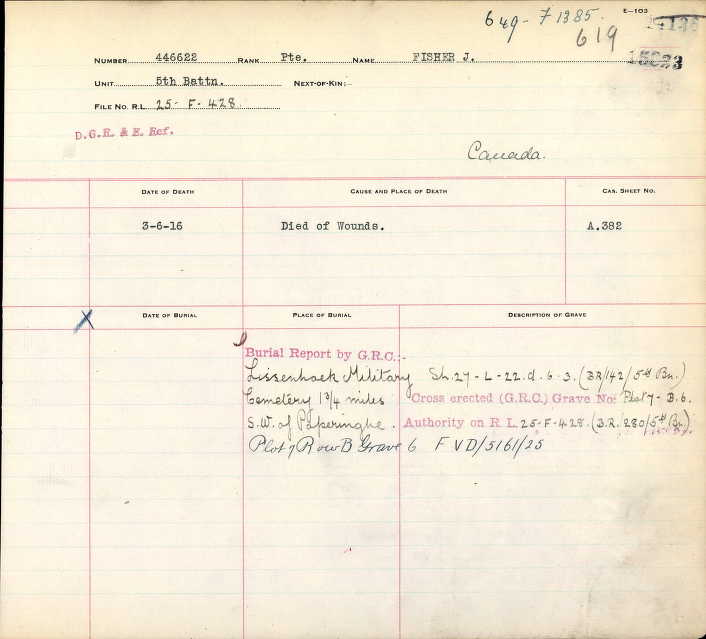 649-F1385. E-103
619
NUMBER 446622 RANK Pte. NAME FISHER J.
UNIT 5th Battn. NEXT-OF-KIN:-
FILE NO. R.L. 25-F-428.
D.G.R. & E. Ref.
Canada.
DATE OF DEATH CAUSE AND PLACE OF DEATH CAS. SHEET NO.
3-6-16 Died of Wounds. A.382
X DATE OF BURIAL PLACE OF BURIAL DESCRIPTION OF GRAVE
Burial Report by G.R.C.:-
Lissenhoek Military Sh.27-L-22.d.6.3. (BR/142/5th Bn.)
Cemetery 1 3/4 miles Cross erected (G.R.C.) Grave No: Plot 7-B.6.
S.W. of Poperinghe. Authority on R.L. 25-F-428. (B.R. 280/5th Bn.)
Plot 7 Row B Grave 6 F VD/5161/25